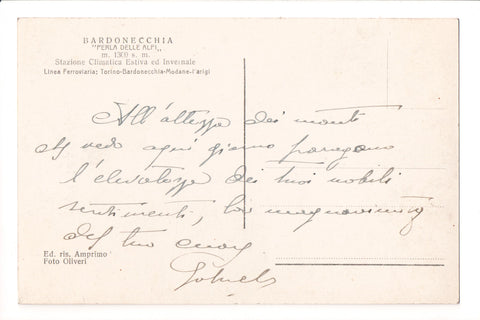 BARDONECCHIA
"PERLA DELLE ALPI„
m. 1300 s. m.
Stazione Climatica Estiva ed Invernale
Linea Ferroviaria: Torino-Bardonecchia-Modane-Parigi
All'altezza dei monti
vedo ogni giorno paragono
l'elevatezza dei tuoi nobili
sentimenti, la magnanimità
del tuo cuore
Ed. ris. Amprimo
Foto Oliveri